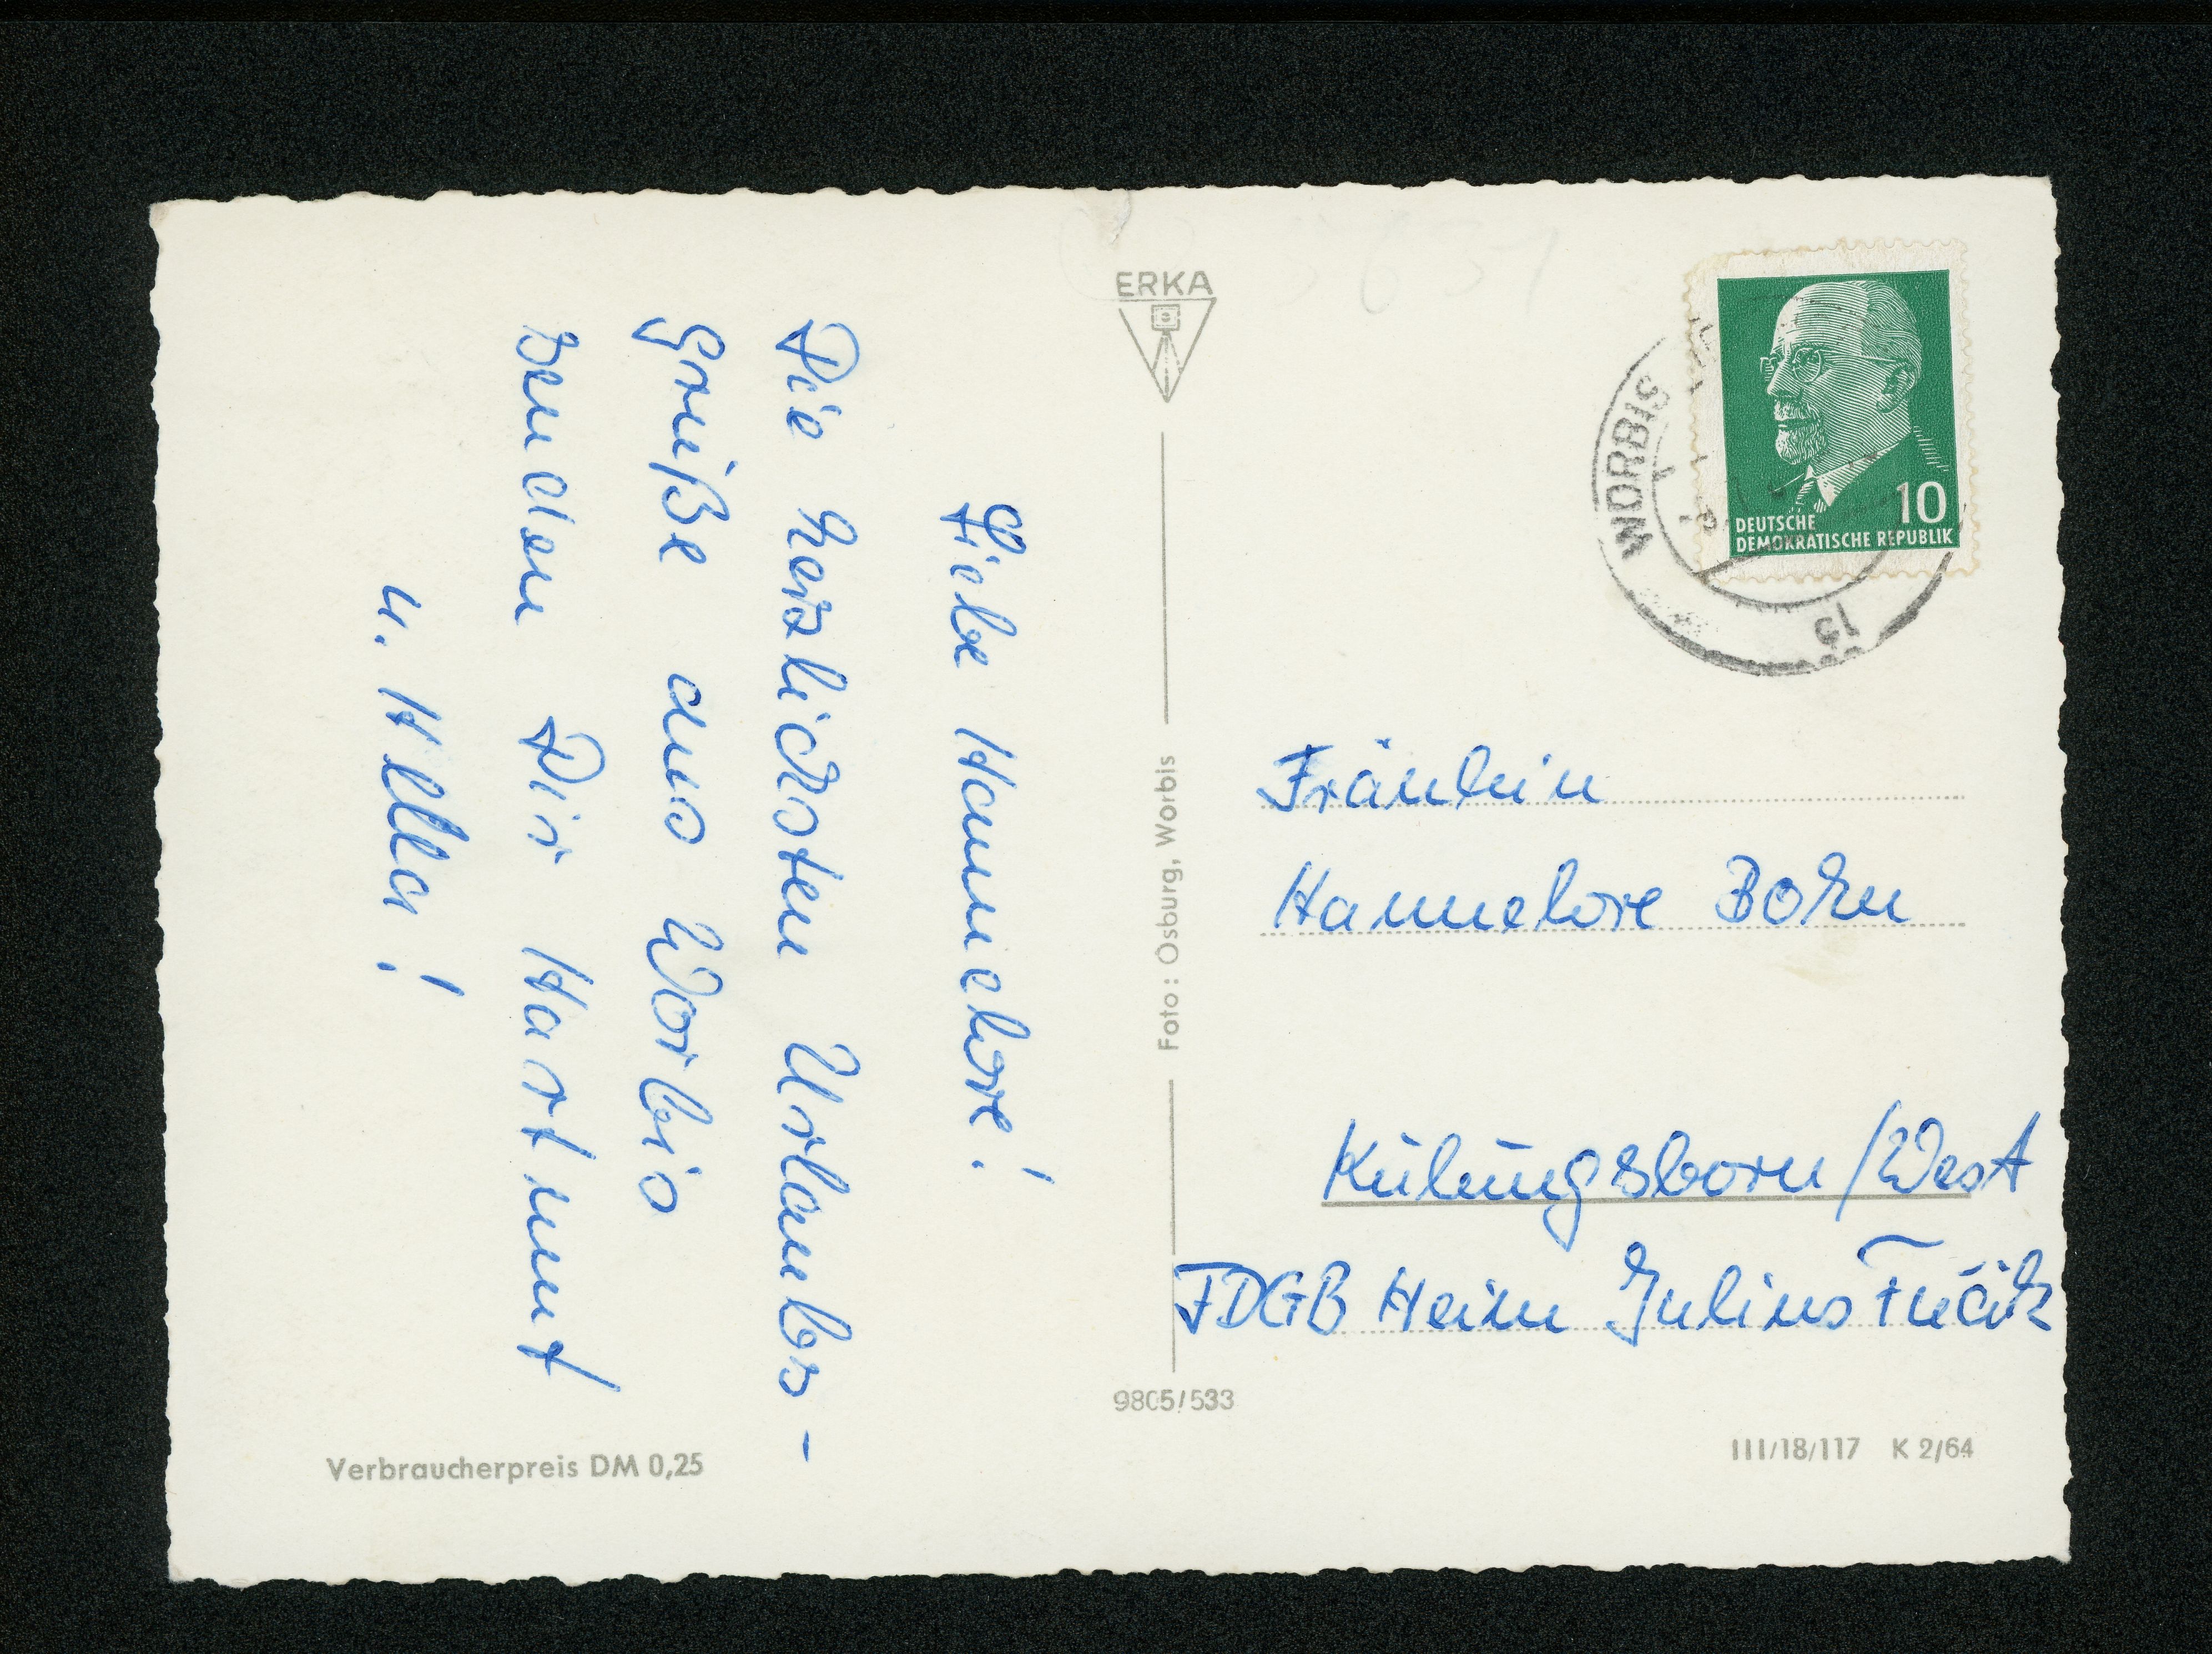 Liebe Hannelore!
Die herzlichsten Urlaubs-
grüße aus Worbis
senden Dir Hartmut
u. Hella!
Verbraucherpreis DM 0,25
ERKA
Foto: Osburg, Worbis
9805/533
WORBIS
10
DEUTSCHE
DEMOKRATISCHE REPUBLIK
Fräulein
Hannelore Bohn
Kühlungsborn/West
FDGB Heim Julius Fučik
III/18/117 K 2/64